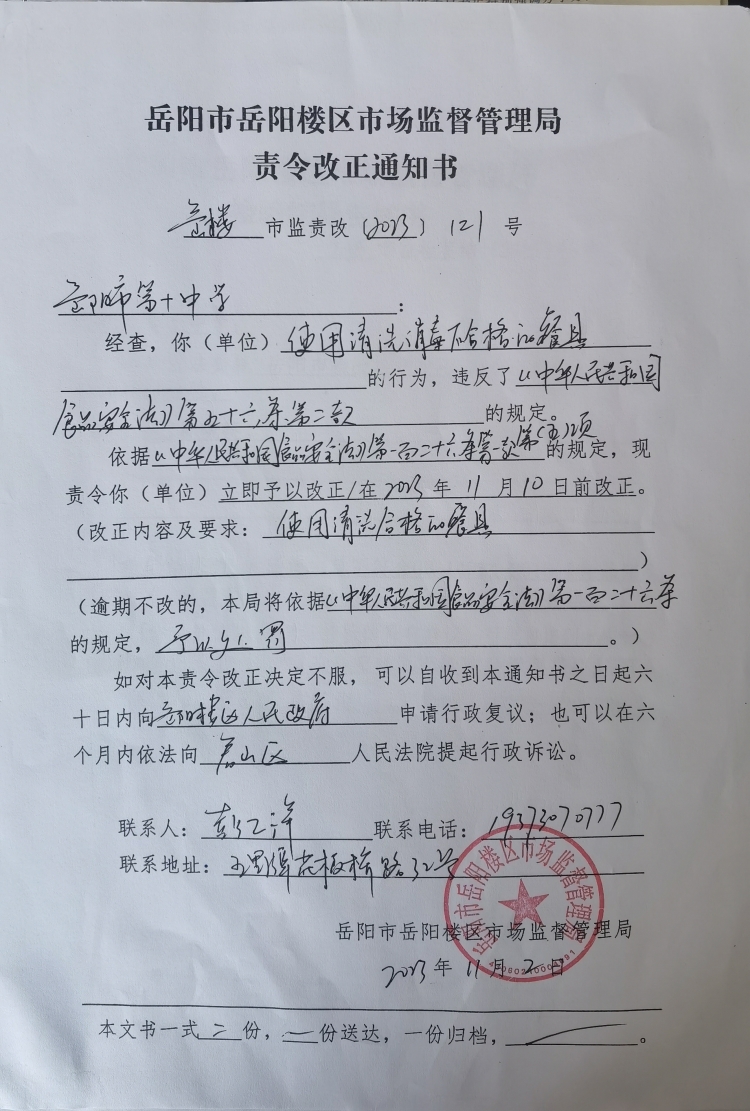 岳阳市岳阳楼区市场监督管理局
责令改正通知书
岳楼 市监责改 (2023) 121 号
岳阳市第十中学:
经查,你(单位)使用清洗消毒不合格的餐具
的行为,违反了《中华人民共和国
食品安全法》第五十六条第二款 的规定。
依据《中华人民共和国食品安全法》第一百二十六条第一款第(五)项 的规定,现
责令你(单位)立即予以改正/在2023年11月10日前改正。
(改正内容及要求: 使用清洗合格的餐具
)
(逾期不改的,本局将依据《中华人民共和国食品安全法》第一百二十六条
的规定, 予以处罚 。)
如对本责令改正决定不服,可以自收到本通知书之日起六
十日内向岳阳楼区人民政府 申请行政复议;也可以在六
个月内依法向 君山区 人民法院提起行政诉讼。
联系人: 联系电话: 19373070777
联系地址: 花板桥路32号
岳阳市岳阳楼区市场监督管理局
岳阳市岳阳楼区市场监督管理局
2023年11月2日
本文书一式二份,一份送达,一份归档, 。